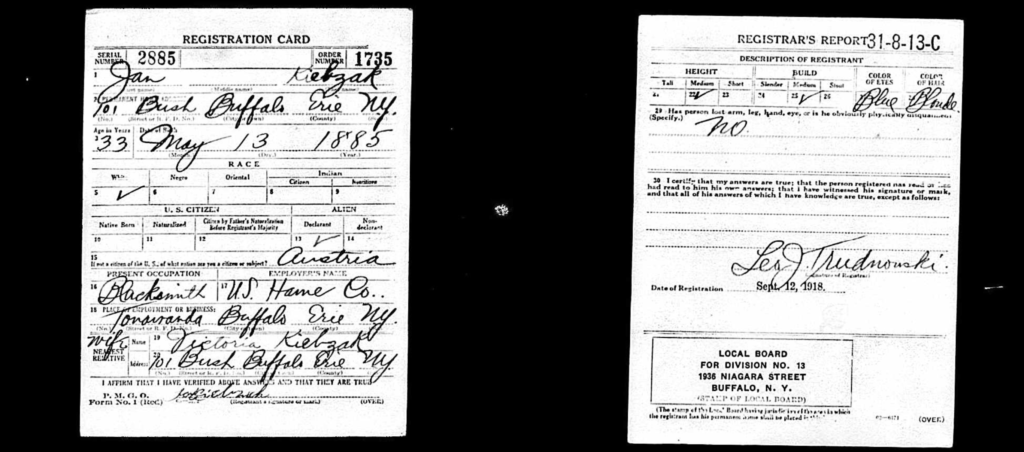 REGISTRATION CARD
SERIAL NUMBER 2885 ORDER NUMBER 1735
1 Jan Kiebzak
701 Bush Buffalo Erie N.Y.
(No.) (City or town) (County)
Age in Years Date of Birth
33 May 13 1885
(Month) (Day) (Year)
RACE
White Negro Oriental Indian
Citizen Noncitizen
5 ✓ 6 7 8 9
U. S. CITIZEN ALIEN
Native Born Naturalized Citizen by Father's Naturalization Before Registrant's Majority Declarant Non-declarant
10 11 12 13 ✓ 14
15 If not a citizen of the U. S., of what nation are you a citizen or subject? Austria
PRESENT OCCUPATION EMPLOYER'S NAME
16 Blacksmith 17 U.S. Hame Co..
18 PLACE OF EMPLOYMENT OR BUSINESS:
Tonawanda Buffalo Erie N.Y.
(No.) (Street or R. F. D. No.) (City or town) (County)
Wife Name 19 Victoria Kiebzak
NEAREST RELATIVE Address 20 701 Bush Buffalo Erie N.Y.
I AFFIRM THAT I HAVE VERIFIED ABOVE ANSWERS AND THAT THEY ARE TRUE
P. M. G. O.
Form No. 1 (Red) (Registrant's signature or mark) (OVER)
REGISTRAR'S REPORT 31-8-13-C
DESCRIPTION OF REGISTRANT
HEIGHT BUILD COLOR OF EYES COLOR OF HAIR
Tall Medium Short Slender Medium Stout
21 22 ✓ 23 24 25 ✓ 26 Blue Blonde
29 Has person lost arm, leg, hand, eye, or is he obviously physically disqualified?
(Specify.) No.
30 I certify that my answers are true; that the person registered has read or has
had read to him his own answers; that I have witnessed his signature or mark,
and that all of his answers of which I have knowledge are true, except as follows:
Leo J. Trudnowski.
(Signature of Registrar)
Date of Registration Sept. 12, 1918.
LOCAL BOARD
FOR DIVISION NO. 13
1936 NIAGARA STREET
BUFFALO, N. Y.
(STAMP OF LOCAL BOARD)
(The stamp of the Local Board having jurisdiction of the area in which
the registrant has his permanent home shall be placed in
(OVER)